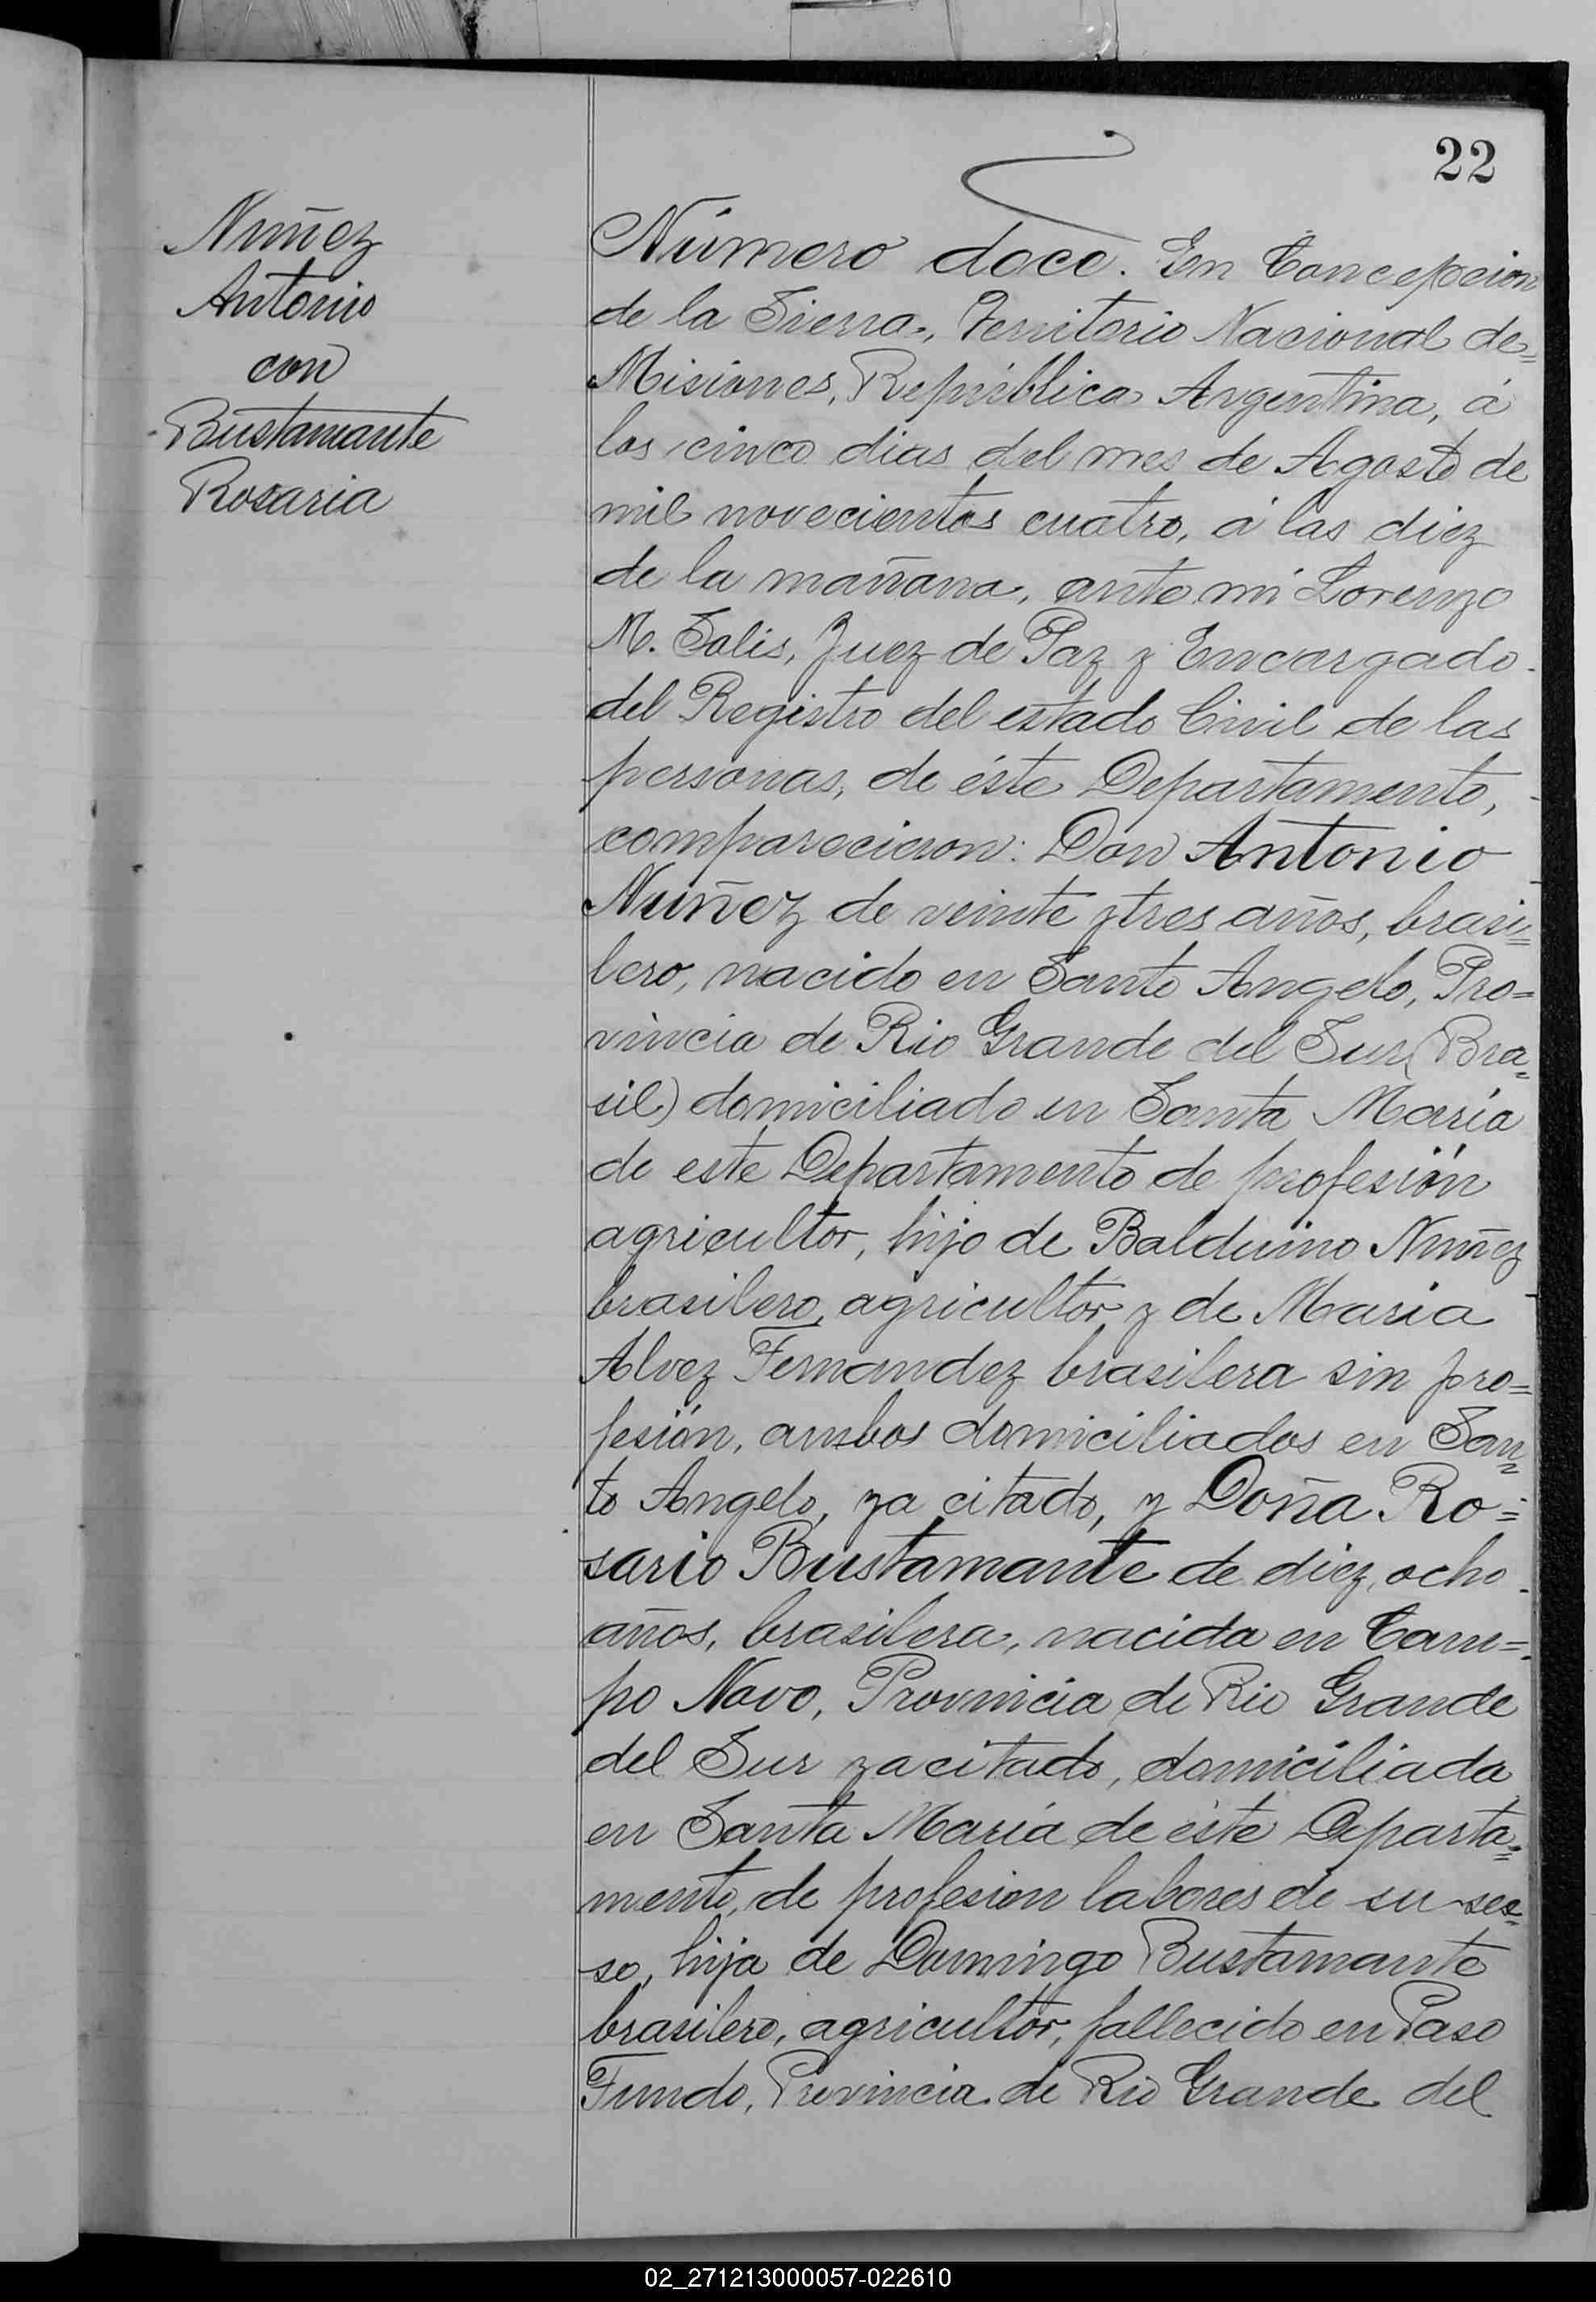 22
Nuñez
Antonio
con
Bustamante
Rosaria
Número doce. En Concepcion
de la Sierra, Territorio Nacional de=
Misiones, República Argentina, á
los cinco dias del mes de Agosto de
mil novecientos cuatro, á las diez
de la mañana, ante mi Lorenzo
M. Solis, Juez de Paz y Encargado
del Registro del estado Civil de las
personas, de éste Departamento,
comparecieron: Don Antonio
Nuñez de veinte y tres años, brasi=
lero, nacido en Santo Angelo, Pro=
vincia de Rio Grande del Sur (Bra=
sil) domiciliado en Santa María
de este Departamento de profesión
agricultor, hijo de Balduino Nuñez
brasilero, agricultor y de Maria
Alvez Fernandez brasilera sin pro=
fesión, ambos domiciliados en San=
to Angelo, ya citado, y Doña Ro=
sario Bustamante de diez, ocho
años, brasilera, nacida en Cam=
po Novo, Provincia de Rio Grande
del Sur ya citado, domiciliada
en Santa María de éste Departa=
mento, de profesion labores de su sec=
so, hija de Domingo Bustamante
brasilero, agricultor, fallecido en Paso
Fundo, Provincia de Rio Grande del
02_271213000057-022610